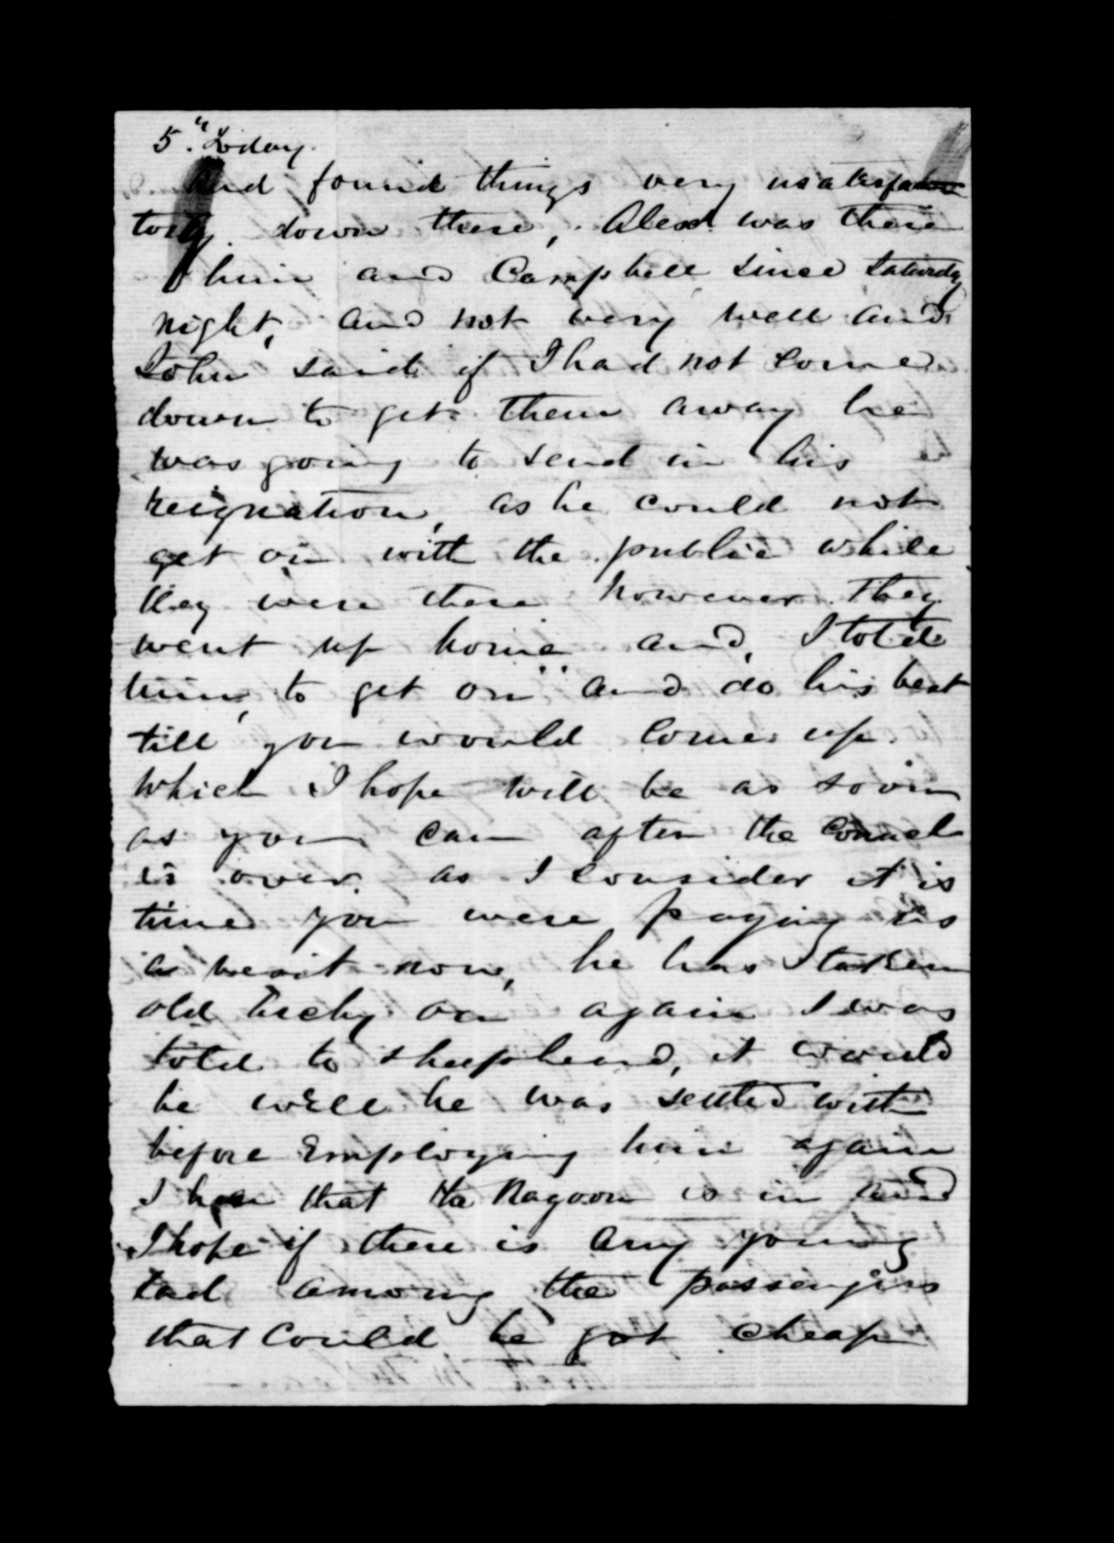 5." Today.
And found things very usatisfac
tory down there, Alexd was there
him and Campbell since Saturdy
night, and not very well and
John said if I had not come
down to get them away he
was going to send in his
resignation, as he could not
get on with the public while
they were there however they
went up home and, I told
him, to get on" and do his best
till you would come up.
which I hope will be as soon
as you can after the
is over. as I consider it is
time you were paying us
a vesit now, he has taken
old on again I was
told to shepherd, it would
be well he was settled with
before Employing him again
I that the is in and
I hope if there is any young
lad among the passengers
that could be got cheap